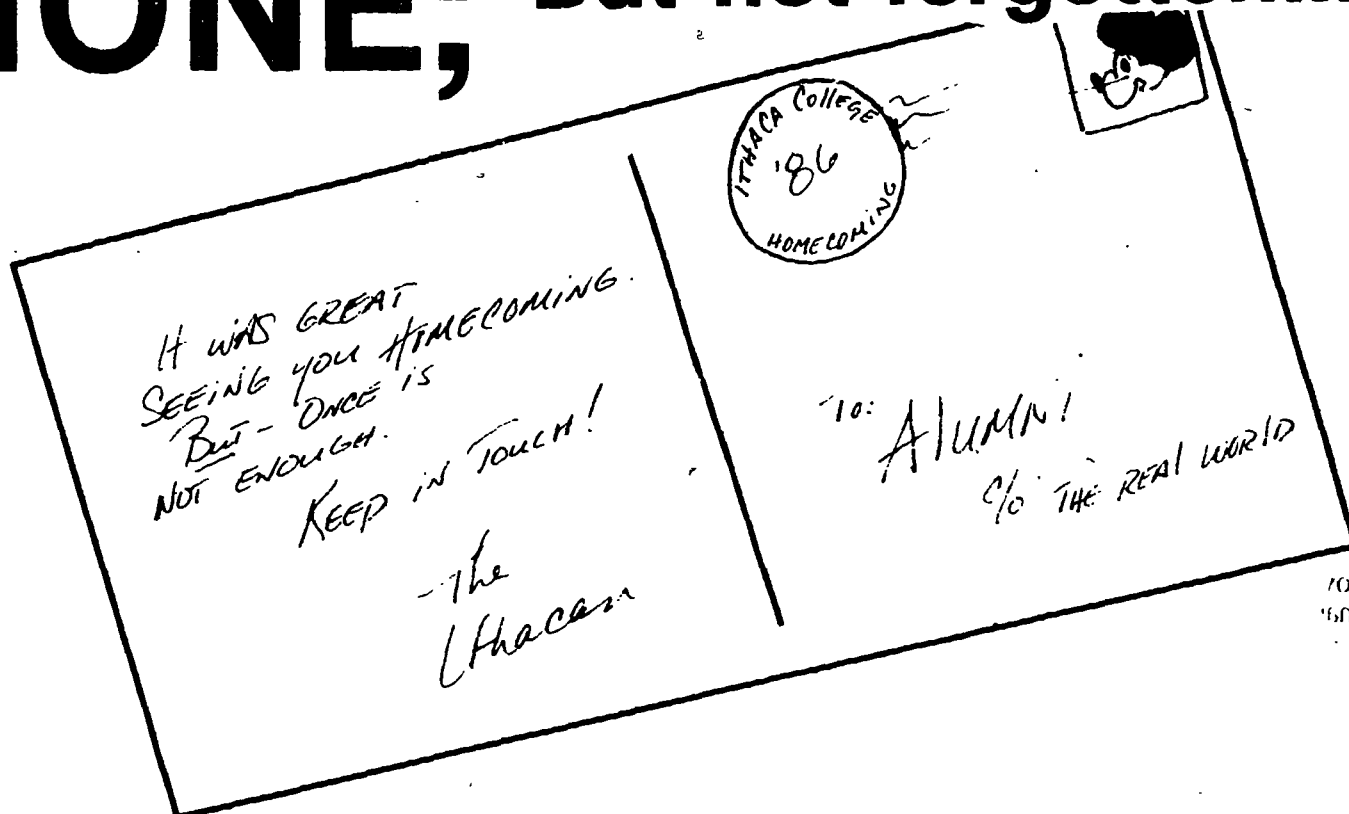 but not forgotten...
ITHACA COLLEGE
'86
HOMECOMING
IT WAS GREAT
SEEING YOU HOMECOMING.
BUT - ONCE IS
NOT ENOUGH.
KEEP IN TOUCH!
- The
Ithacan
TO:
Alumni
c/o THE REAL WORLD